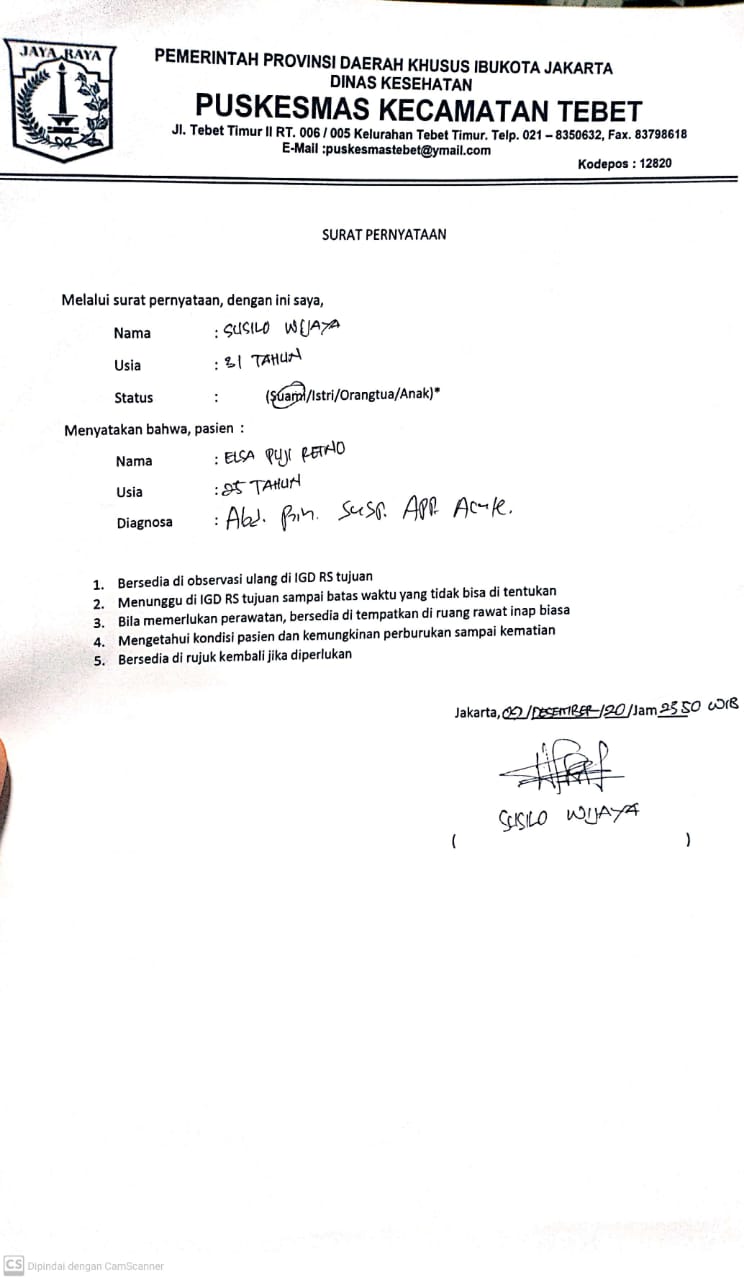 JAYA RAYA
PEMERINTAH PROVINSI DAERAH KHUSUS IBUKOTA JAKARTA
DINAS KESEHATAN
PUSKESMAS KECAMATAN TEBET
Jl. Tebet Timur II RT. 006 / 005 Kelurahan Tebet Timur. Telp. 021 – 8350632, Fax. 83798618
E-Mail :puskesmastebet@ymail.com
Kodepos : 12820
SURAT PERNYATAAN
Melalui surat pernyataan, dengan ini saya,
Nama : SUSILO WIJAYA
Usia : 31 TAHUN
Status : (Suami/Istri/Orangtua/Anak)*
Menyatakan bahwa, pasien :
Nama : ELSA PUJI RETNO
Usia : 25 TAHUN
Diagnosa : Abd. Susp. App. Acute.
1. Bersedia di observasi ulang di IGD RS tujuan
2. Menunggu di IGD RS tujuan sampai batas waktu yang tidak bisa di tentukan
3. Bila memerlukan perawatan, bersedia di tempatkan di ruang rawat inap biasa
4. Mengetahui kondisi pasien dan kemungkinan perburukan sampai kematian
5. Bersedia di rujuk kembali jika diperlukan
Jakarta, /DESEMBER/20/Jam WIB
SUSILO WIJAYA
( )
CS Dipindai dengan CamScanner